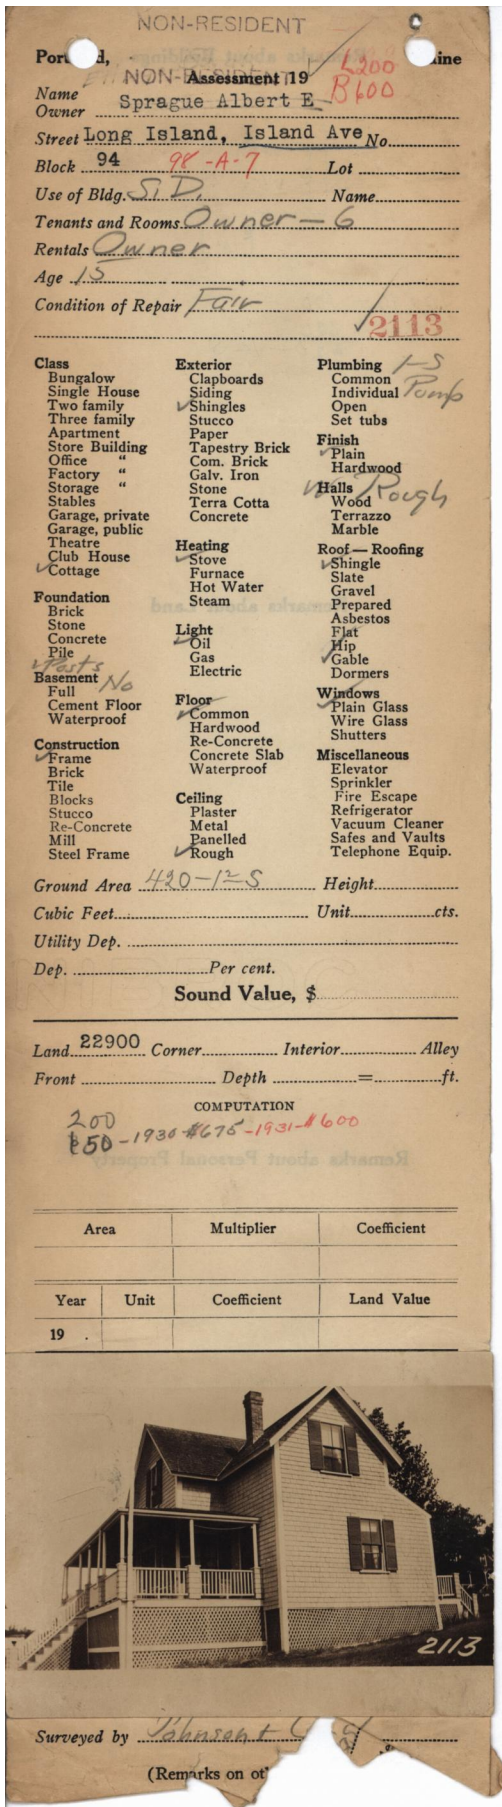 NON-RESIDENT
Portland, Maine
NON-RESIDENT
Assessment 19
L200
B600
Name
Owner Sprague Albert E.
Street Long Island, Island Ave No
Block 94 98-A-7 Lot
Use of Bldg. S.D. Name
Tenants and Rooms Owner - 6
Rentals Owner
Age 15
Condition of Repair Fair
2113
Class
Bungalow
Single House
Two family
Three family
Apartment
Store Building
Office "
Factory "
Storage "
Stables
Garage, private
Garage, public
Theatre
Club House
Cottage
Foundation
Brick
Stone
Concrete
Pile
Posts
Basement No
Full
Cement Floor
Waterproof
Construction
Frame
Brick
Tile
Blocks
Stucco
Re-Concrete
Mill
Steel Frame
Exterior
Clapboards
Siding
Shingles
Stucco
Paper
Tapestry Brick
Com. Brick
Galv. Iron
Stone
Terra Cotta
Concrete
Heating
Stove
Furnace
Hot Water
Steam
Light
Oil
Gas
Electric
Floor
Common
Hardwood
Re-Concrete
Concrete Slab
Waterproof
Ceiling
Plaster
Metal
Panelled
Rough
Plumbing 1-S
Common
Individual Pump
Open
Set tubs
Finish
Plain
Hardwood
Halls Rough
Wood
Terrazzo
Marble
Roof—Roofing
Shingle
Slate
Gravel
Prepared
Asbestos
Flat
Hip
Gable
Dormers
Windows
Plain Glass
Wire Glass
Shutters
Miscellaneous
Elevator
Sprinkler
Fire Escape
Refrigerator
Vacuum Cleaner
Safes and Vaults
Telephone Equip.
Ground Area 420-1½-S Height
Cubic Feet Unit cts.
Utility Dep.
Dep. Per cent.
Sound Value, $
Land 22900 Corner Interior Alley
Front Depth = ft.
COMPUTATION
200
850-1930-$675-1931-$600
Area Multiplier Coefficient
Year Unit Coefficient Land Value
19 .
2113
Surveyed by Johnson &
(Remarks on ot